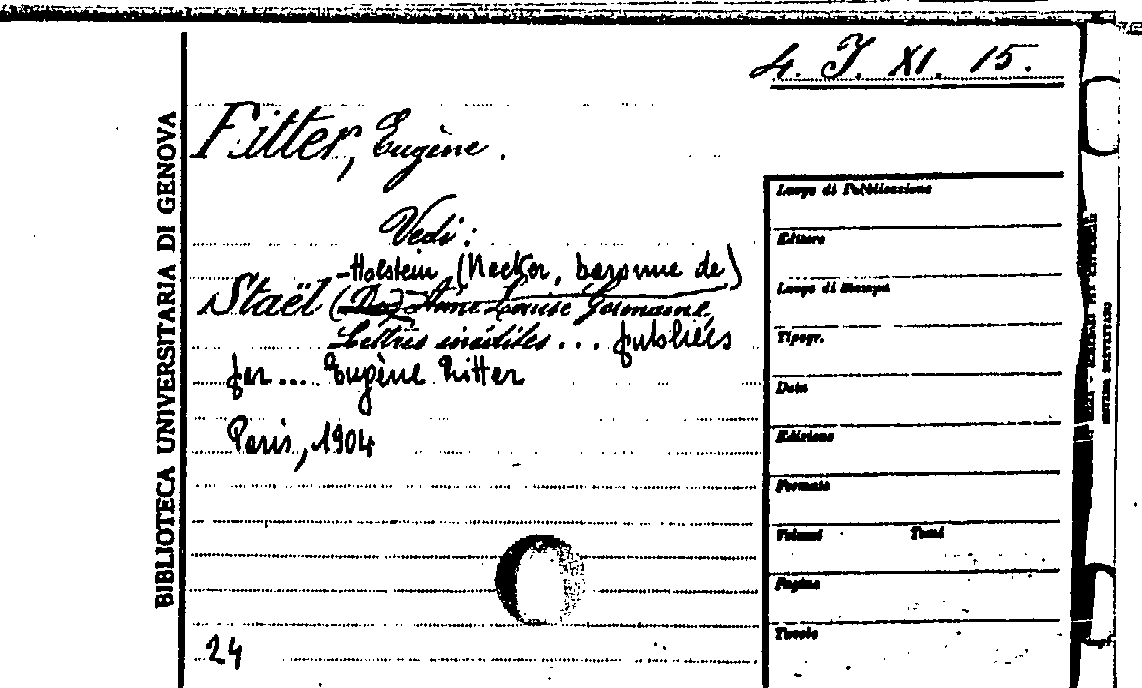 4. J. XI. 15.
BIBLIOTECA UNIVERSITARIA DI GENOVA
Fitter, Eugène.
Vedi:
-Holstein, (Necker, baronne de)
Staël (De) Anne Louise Germaine,
Lettres inédites ... publiées
par .... Eugène Ritter
Paris, 1904
24
Luogo di Pubblicazione
Editore
Luogo di Stampa
Tipogr.
Data
Edizione
Formato
Volumi Tomi
Pagine
Tavole